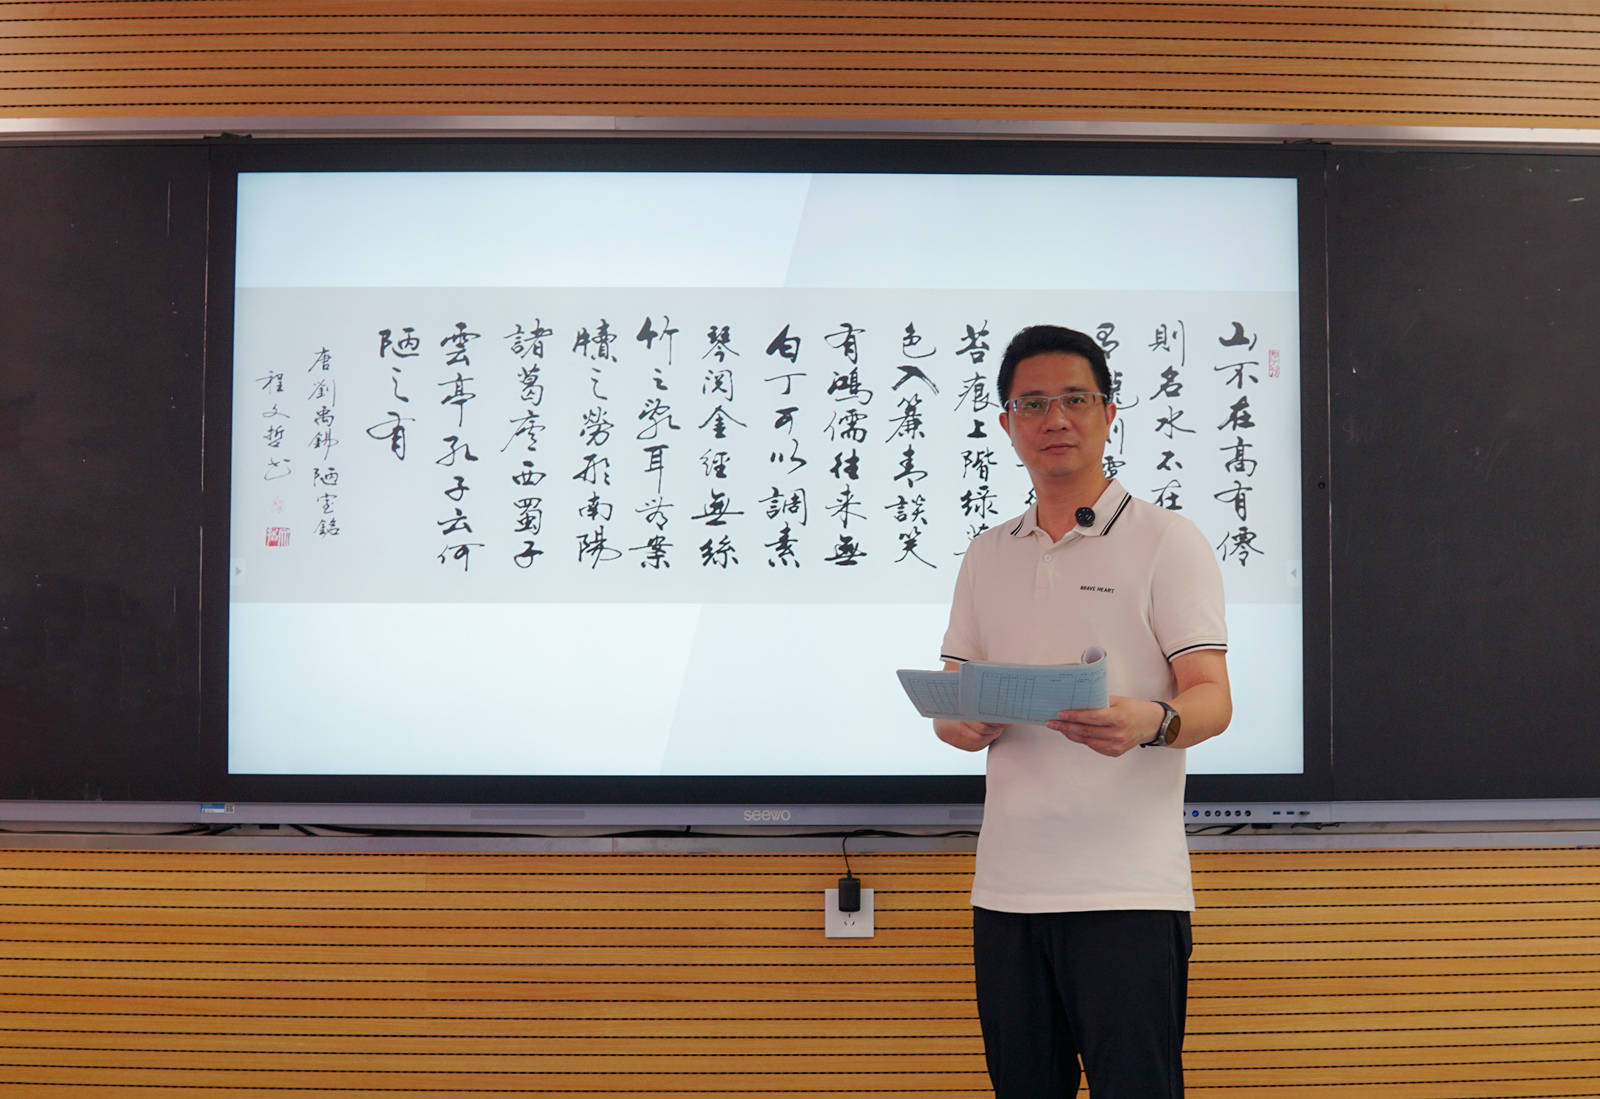 山不在高有僊
則名水不在
龍則靈
苔痕上階綠草
色入簾青談笑
有鴻儒往来無
白丁可以調素
琴閱金經無絲
竹之亂耳無案
牘之勞形南陽
諸葛廬西蜀子
雲亭孔子云何
陋之有
唐劉禹錫陋室銘
程文哲书
BRAVE HEART
seewo